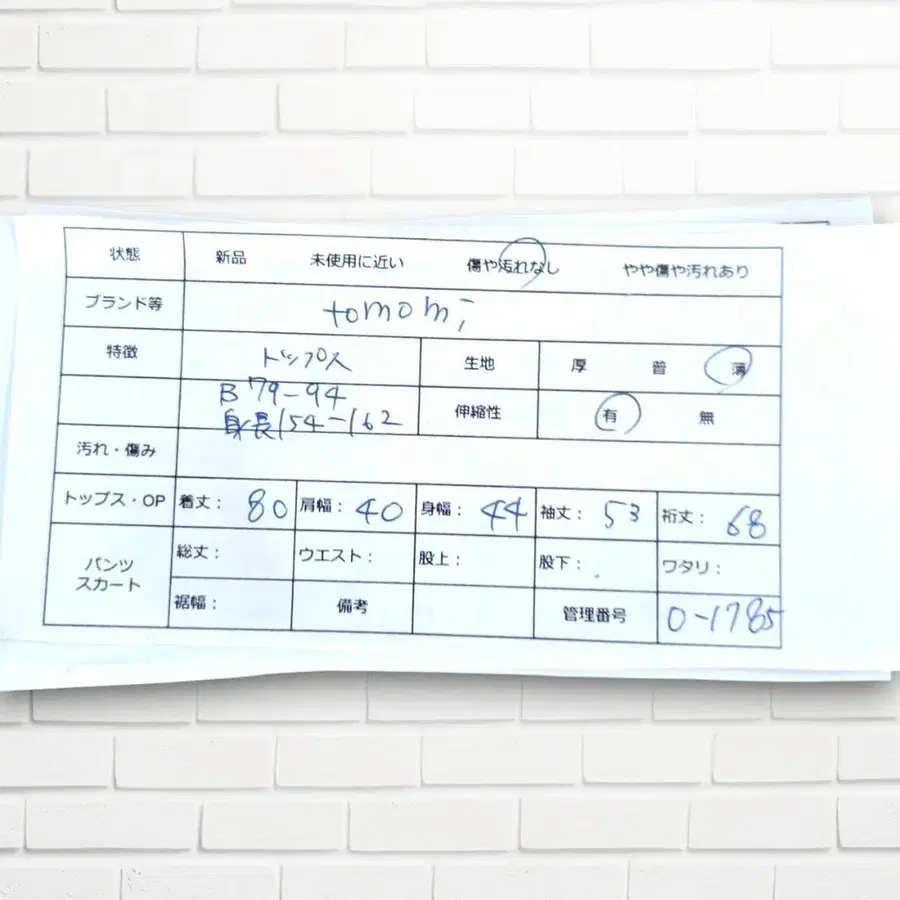 状態 新品 未使用に近い 傷や汚れなし やや傷や汚れあり
ブランド等 tomomi
特徴 トップス 生地 厚 普 薄
B 79-94
身長154-162 伸縮性 有 無
汚れ・傷み
トップス・OP 着丈: 80 肩幅: 40 身幅: 44 袖丈: 53 裄丈: 68
パンツ スカート 総丈: ウエスト: 股上: 股下: ワタリ:
裾幅: 備考 管理番号 0-1785